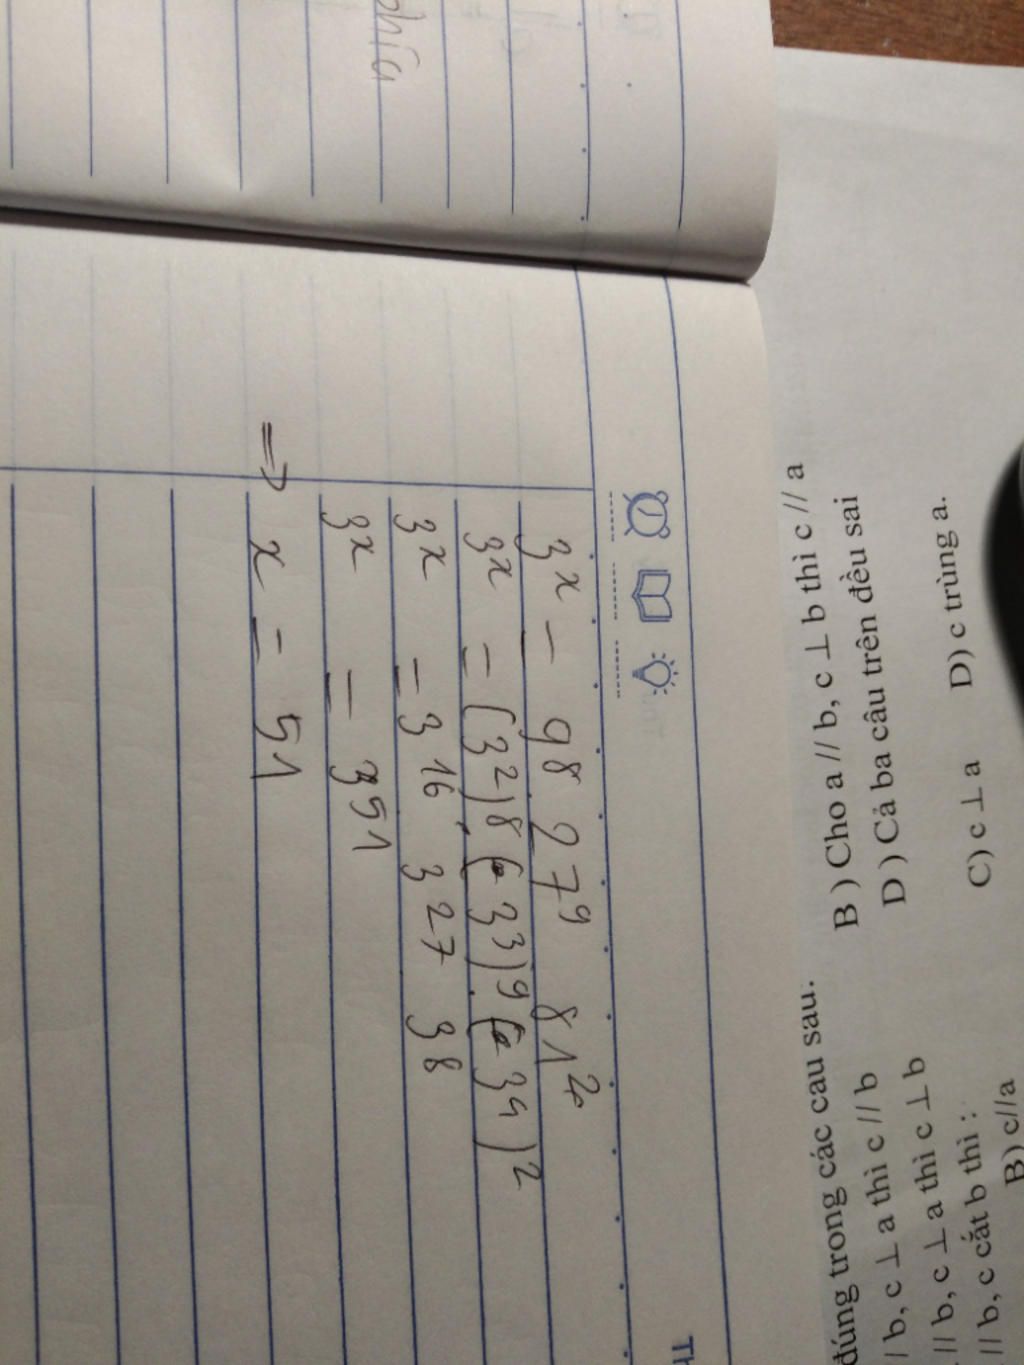 phía
3^x = 9^8 . 27^9 . 81^2
3^x = (3^2)^8 . (3^3)^9 . (3^4)^2
3^x = 3^16 . 3^27 . 3^8
3^x = 3^51
=> x = 51
Th
đúng trong các câu sau:
B ) Cho a // b, c ⊥ b thì c // a
/ b, c ⊥ a thì c // b
D ) Cả ba câu trên đều sai
// b, c ⊥ a thì c ⊥ b
// b, c cắt b thì :
B) c//a
C) c ⊥ a
D) c trùng a.